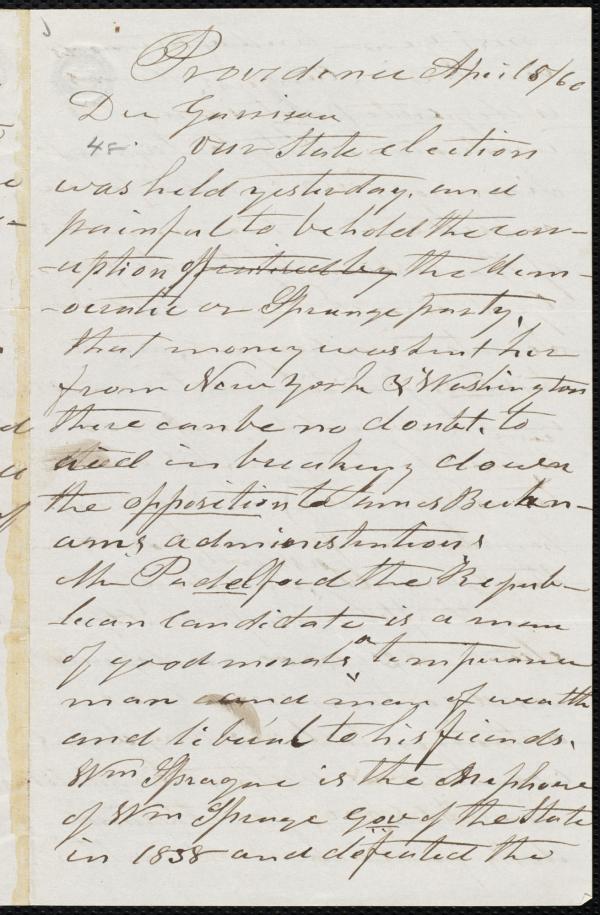 Providence April 5/60
Dear Garrison
Our State election
was held yesterday, and
painful to behold the corr-
-uption of the Dem-
-ocratic or Sprauge party,
that money was sent her
from New York & Washington
there can be no doubt. to
aied in breaking down
the opposition to James Buchan-
ans administrations
Mr Padelford the Repub-
lican Candidate is a man
of good morals, a temperance
man and man of wealth
and liberal to his friends.
Wm Sprague is the Nephew
of Wm Sprauge gov of the State
in 1838 and defeated the